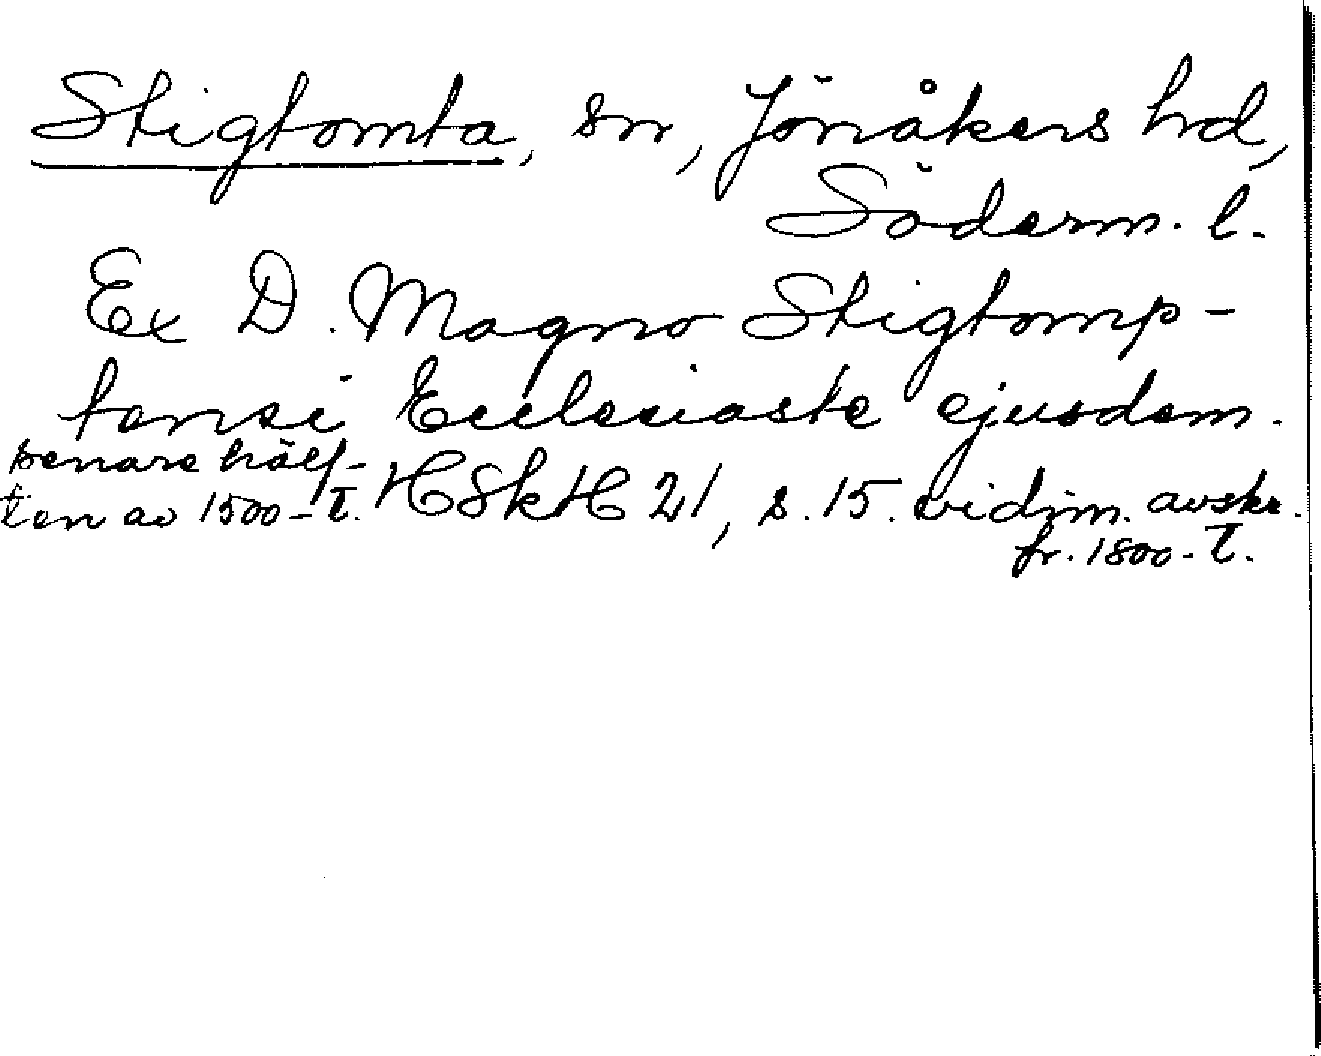 Stigtomta, sn, Jönåkers hd,
Söderm. l.
Ex D. Magno Stigtomp-
tensi Ecclesiaste ejusdem.
senare hälf-
ten av 1500-t. HSkH 21, s. 15. vidim. avskr.
fr. 1800-t.